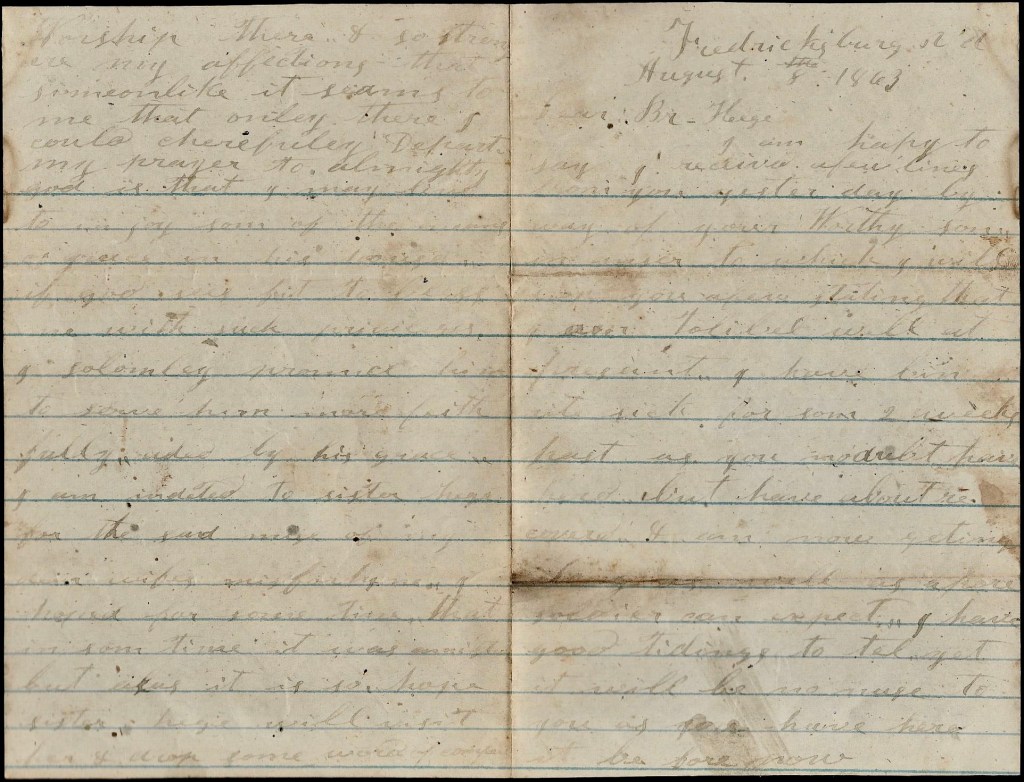 Fredricksburg
August. 8the 1863
Br - Huge
I am hapy to
say I recive afew lines
from you yesterday by
way of your Worthy son
in anser to which I will
drop you afew stating that
I am Tolibal well at
Presant. I have bin
sick for som 2 weeks
past as you nodoubt have
but have about re
coverd & am now geting
a long as well as apore
soldier can expect,, I have
good tidings to tel. yet
it will be no nuse to
you as you have here
it be fore now
Worship there & so strong
are my affections that
someonlike it seams to
me that onley there I
could cherefuley Depart
my prayer to almighty
god is that I may live
to injoy som of the
in his
if god sees fit to bless
me with such
I solomley promice him
to sarve him more faith
fully aded by his grace
I am indeted to sister huge
for the sad nuse of my
wifes misfortune,, I
hoped for some time that
in som time it was amistake
but as it is so. hope
sister huge will visit
her & drop some word of comfort